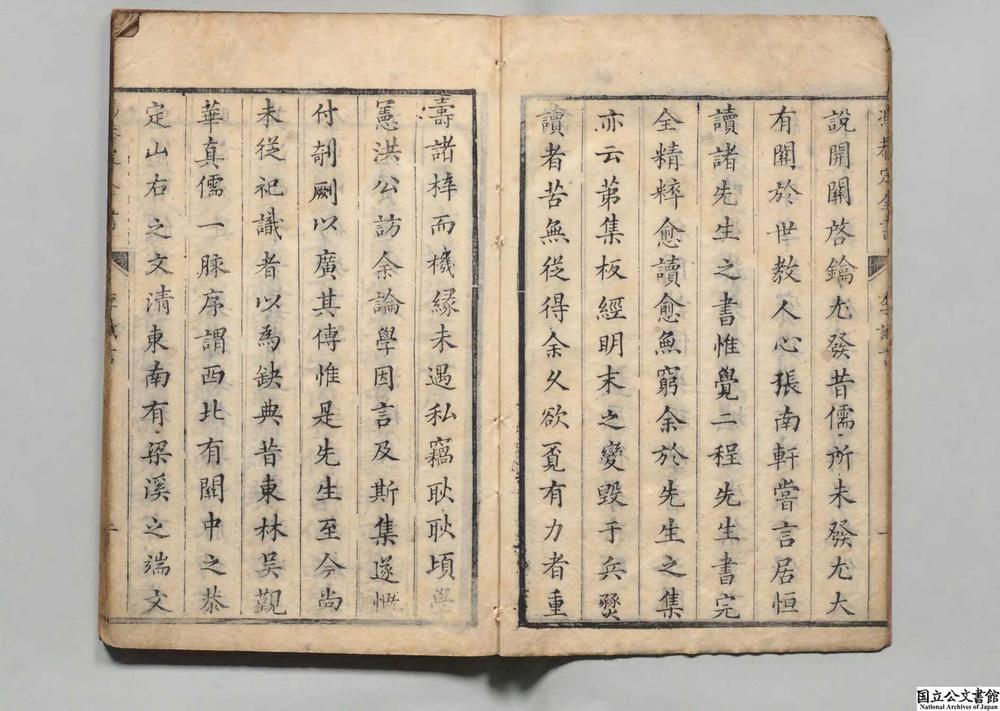 說開關啓鑰尤發昔儒所未發尤大
有關於世教人心張南軒嘗言居恒
讀諸先生之書惟覺二程先生書完
全精粹愈讀愈無窮余於先生之集
亦云苐集板經明末之變毀于兵燹
讀者苦無從得余乆欲覔有力者重
壽諸梓而機緣未遇私竊耿耿頃學
憲洪公訪余論學因言及斯集遂慨
付剞劂以廣其傳惟是先生至今尚
未從祀識者以為缺典昔東林吴覲
華真儒一脉序謂西北有關中之恭
定山右之文清東南有梁溪之端文
国立公文書館
National Archives of Japan